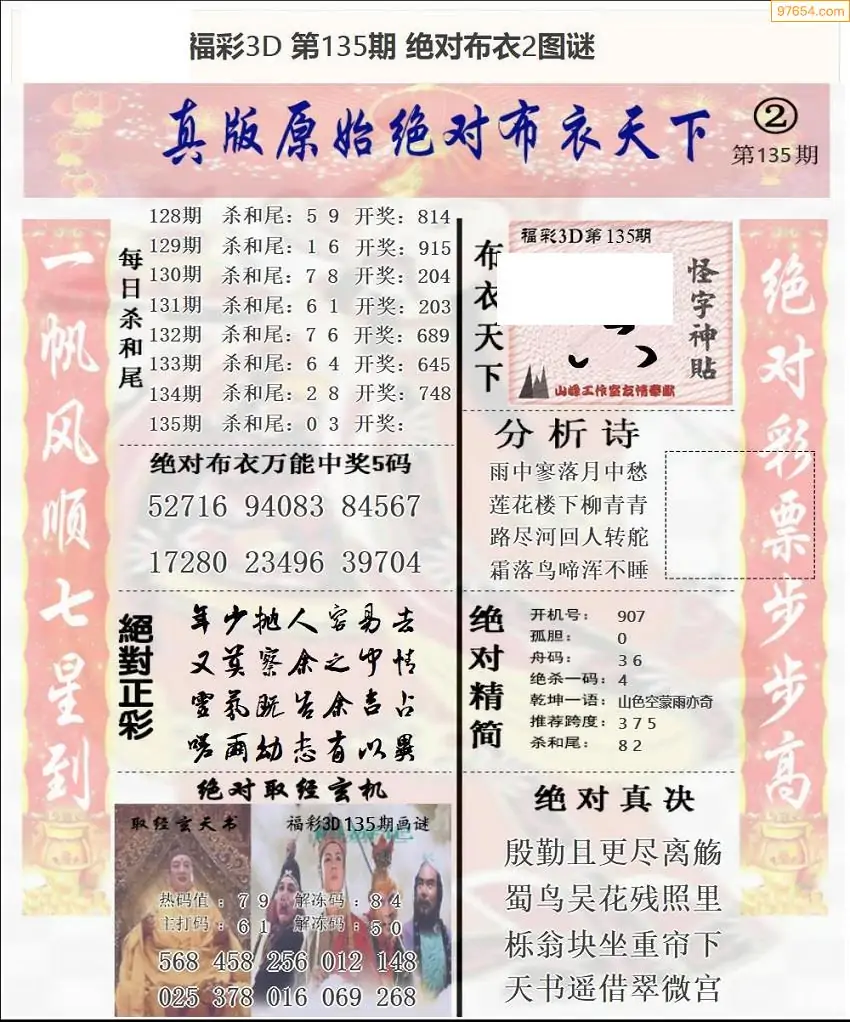 97654.com
福彩3D 第135期 绝对布衣2图谜
真版原始绝对布衣天下
②
第135期
一帆风顺七星到
每日杀和尾
128期 杀和尾：5 9 开奖：814
129期 杀和尾：1 6 开奖：915
130期 杀和尾：7 8 开奖：204
131期 杀和尾：6 1 开奖：203
132期 杀和尾：7 6 开奖：689
133期 杀和尾：6 4 开奖：645
134期 杀和尾：2 8 开奖：748
135期 杀和尾：0 3 开奖：
绝对布衣万能中奖5码
52716 94083 84567
17280 23496 39704
絕對正彩
年少抛人容易去
又莫察余之中情
灵氛既告余吉占
嗟尔幼志有以异
绝对取经玄机
取经玄天书
福彩3D135期画谜
热码值：7 9 解冻码：8 4
主打码：6 1 解冻码：5 0
568 458 256 012 148
025 378 016 069 268
布衣天下
福彩3D第135期
怪字神贴
山峰工作室友情奉献
分析诗
雨中寥落月中愁
莲花楼下柳青青
路尽河回人转舵
霜落鸟啼浑不睡
绝对精简
开机号： 907
孤胆： 0
舟码： 3 6
绝杀一码：4
乾坤一语：山色空蒙雨亦奇
推荐跨度：3 7 5
杀和尾： 8 2
绝对真决
殷勤且更尽离觞
蜀鸟吴花残照里
栎翁块坐重帘下
天书遥借翠微宫
绝对彩票步步高